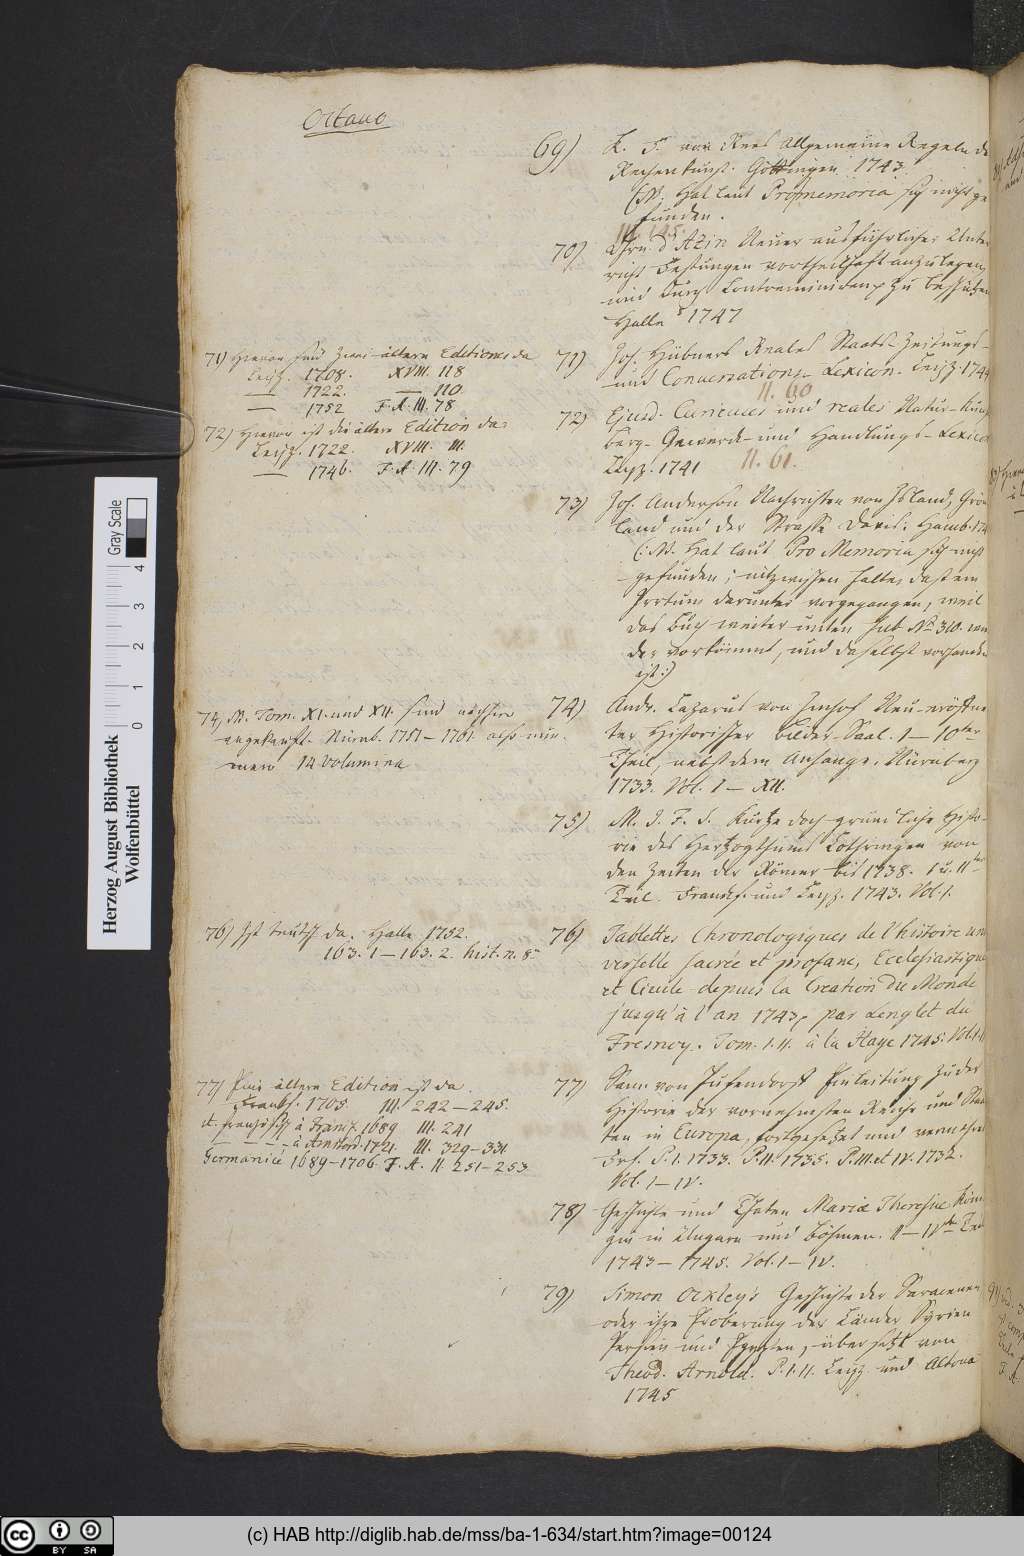 Octavo
69) L. F. von Rees Allgemeine Regeln de
Rechenkunst. Göttingen 1743.
(NB. Hat laut Promemoria sich nicht ge
funden.
70) d'Azin Neuer ausführlicher Unter
richt Festungen vortheilhaft anzulegen,
und durch Contreminirung zu beschützen
Halle 1747
71) Hiervon sind zwei ältere Editiones da
Leipz. 1708. XVIII. 118
— 1722. — 110.
— 1752 F. A. III. 78
71) Joh. Hübners Reales Staats- Zeitungs-
und Conversations- Lexicon. Leipz. 1744
11. 60
72) Hiervon ist die ältere Edition da
Leipz. 1722. XVIII. 111.
— 1746. F. A. III. 79
72) Ejusd. Curieuses und reales Natur- Kunst
Berg- Gewerck- und Handlungs- Lexico
Leipz. 1741 11. 61.
73) Joh. Anderson Nachrichten von Island, Grön
land und der Strasse Davis. Hamb. 174
(: NB. Hat laut Pro Memoria sich nicht
gefunden; inzwischen halte, daß ein
Irrtum darunter vorgegangen, weil
das Buch weiter unten sub No 310. wie
der vorkömmt, und daselbst vorhanden
ist :)
74) NB. Tom. XI. und XII. sind nachher
angekauft. Nürnb. 1751 – 1761. also nun
mero 14 Volumina
74) Andr. Lazarus von Imhof Neu-eröffne
ter Historischer Bilder-Saal. 1 – 10ter
Theil, nebst dem Anhange. Nürnberg
1733. Vol. I – XII.
75) M. J. F. S. Kurtze doch gründliche Histo-
rie des Hertzogthums Lothringen von
den Zeiten der Römer bis 1738. I u. IIter
Teil. Franckf. und Leipz. 1743. Vol. 1.
76) Ist teutsch da. Halle 1752.
163. 1 – 163. 2. hist. n. 8º
76) Tablettes Chronologiques de l'histoire uni
verselle sacrée et profane, Ecclesiastique
et Civile depuis la Creation du Monde
jusqu'à l'an 1743, par Lenglet du
Fresnoy. Tom. I. II. à la Haye 1745. Vol. I. II
77) Eine ältere Edition ist da.
Frankf. 1705. III. 242 – 245.
it. französisch à Francf. 1689 III. 241
— — à Amsterd. 1721. III. 329 – 331.
Germanicè 1689 – 1706. F. A. II. 251 – 253
77) Sam. von Pufendorff Einleitung zu der
Historie der vornehmsten Reiche und Staa
ten in Europa, fortgesetzet und vermehret
Frf. P. I. 1733. P. II. 1735. P. III. et IV. 1732.
Vol. I – IV.
78) Geschichte und Thaten Mariæ Theresiæ Köni
gin in Ungarn und Böhmen. I – IVter Teil
1743 – 1745. Vol. I – IV.
79) Simon Ockley's Geschichte der Saracenen
oder ihre Eroberung der Länder Syrien
Persien und Egypten, übersetzt von
Theod. Arnold. P. I. II. Leipz. und Altona
1745
Herzog August Bibliothek
Wolfenbüttel
0 1 2 3 4
Gray Scale
(c) HAB http://diglib.hab.de/mss/ba-1-634/start.htm?image=00124
cc BY SA